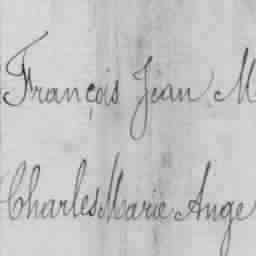 François Jean M
Charles Marie Ange